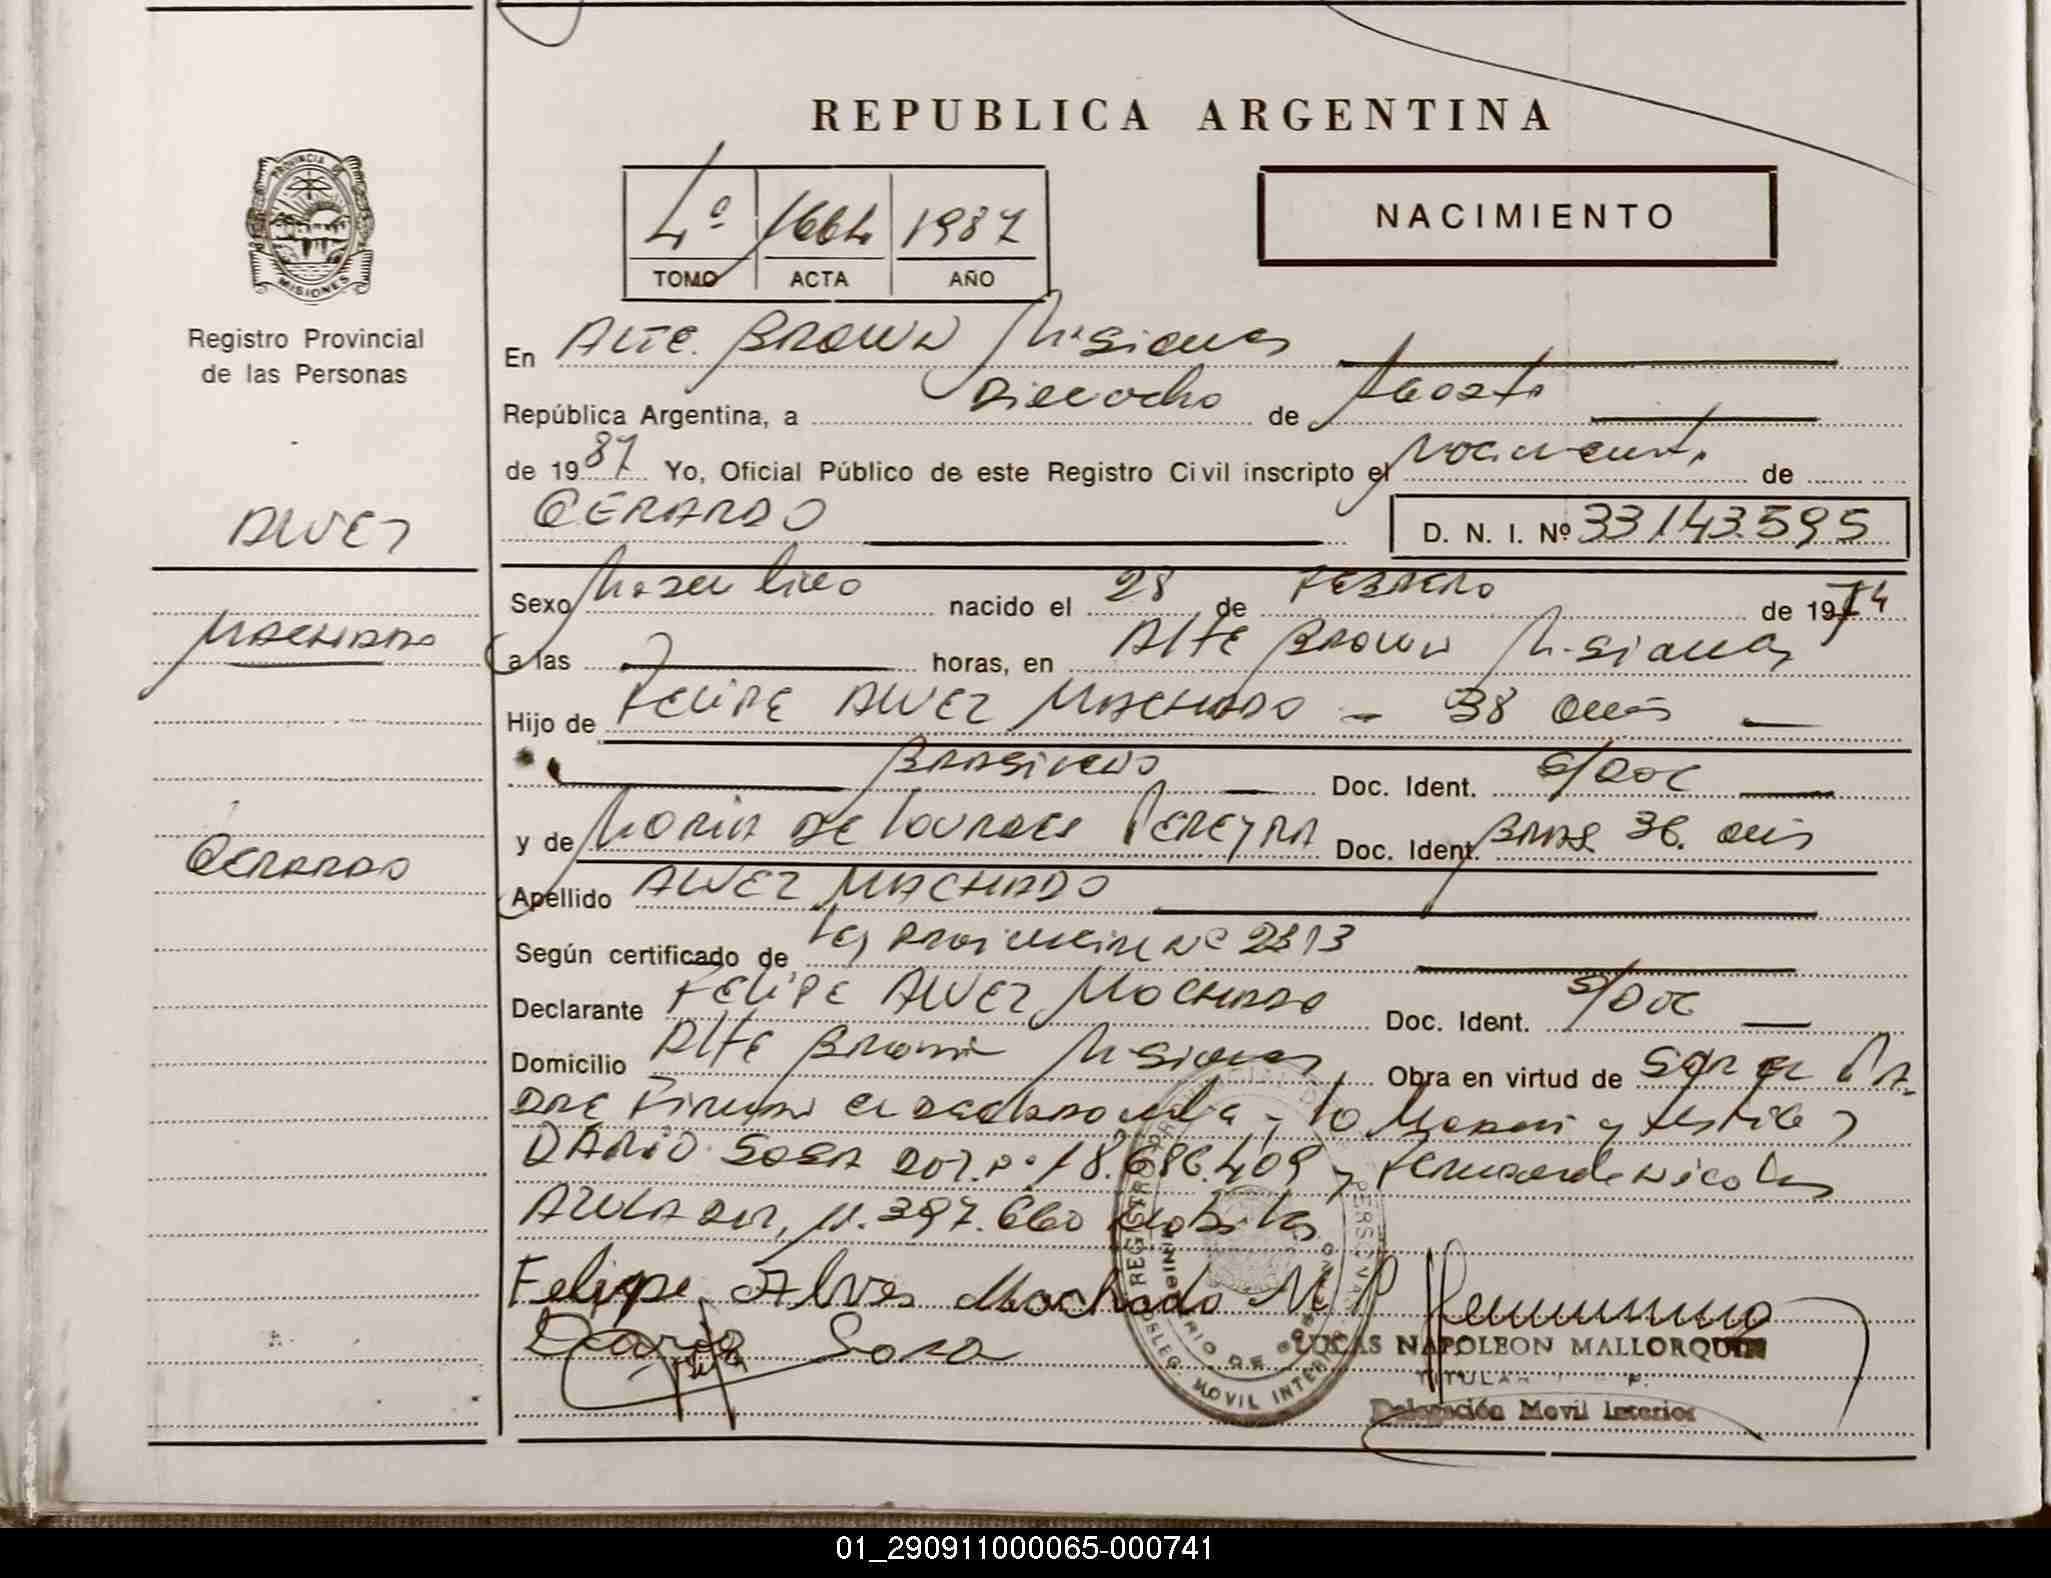 REPUBLICA ARGENTINA
PROVINCIA DE
MISIONES
Registro Provincial
de las Personas
4º 1664 1987
TOMO ACTA AÑO
NACIMIENTO
En Alte. Brown Misiones
República Argentina, a Dieciocho de Agosto
de 1987 Yo, Oficial Público de este Registro Civil inscripto el Nacimiento de
GERARDO D. N. I. Nº 33143.595
ALVEZ
MACHADO
GERARDO
Sexo Masculino nacido el 28 de FEBRERO de 1974
a las horas, en Alte Brown Misiones
Hijo de FELIPE ALVEZ MACHADO - 38 años
BRASILERO Doc. Ident. S/DOC
y de MARIA DE LOURDES PEREYRA Doc. Ident. BRAS. 36. años
Apellido ALVEZ MACHADO
Según certificado de Ley Nº 2813
Declarante FELIPE ALVEZ MACHADO Doc. Ident. S/DOC
Domicilio Alte Brown Misiones Obra en virtud de SER EL PA-
DRE Firman el declarante y testigos
DARIO SOSA DNI. Nº 18.686.409 y Nicolas
DNI. 11.397.660
Felipe Alves Machado M P
Dario Sosa
LUCAS NAPOLEON MALLORQUIN
TITULAR
Delegación Movil Interior
01_290911000065-000741